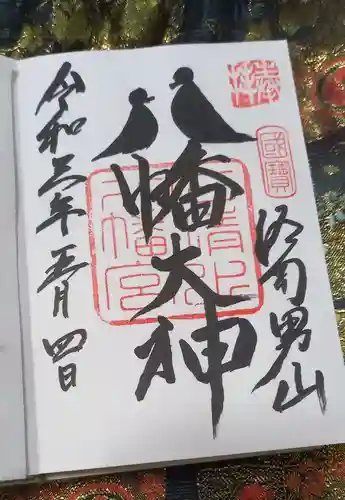 奉拝
國寶
洛南男山
八幡大神
石清水八幡宮
令和三年五月四日